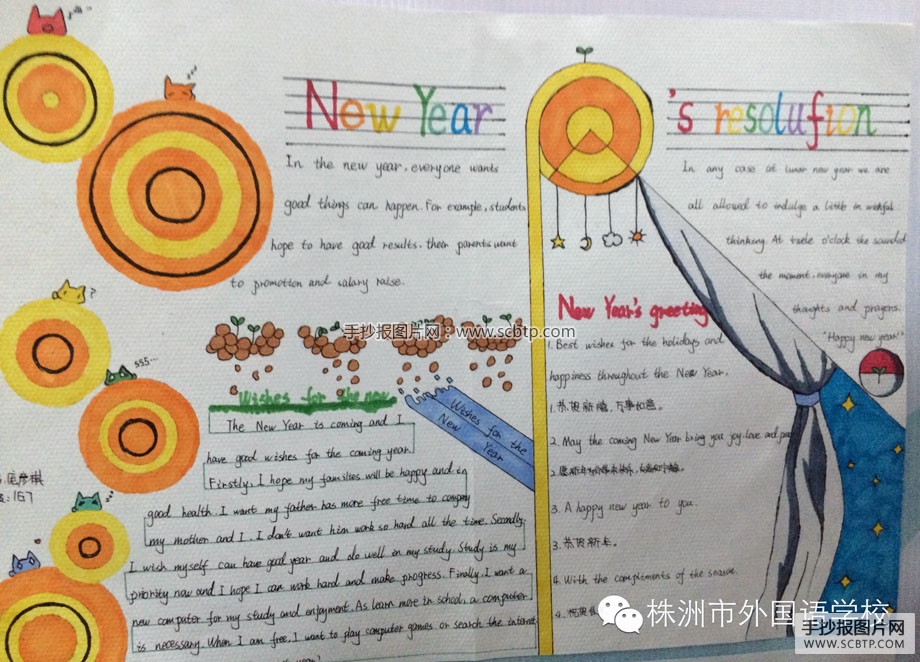 New Year
's resolufion
In the new year, everyone wants
good things can happen. For example, students
hope to have good results, their parents want
to promotion and salary raise.
In any case at lunar new year we are
all allowed to indulge a little in wishful
thinking. At o'clock the sounded
the moment, everyone in my
thoughts and prayers.
"Happy new year!"
手抄报图片网:www.scbtp.com
Wishes for the new
Wishes for the
New Year
The New Year is coming and I
have good wishes for the coming year.
Firstly, I hope my families will be happy and in
good health. I want my father has more free time to company
my mother and I. I don't want him work so hard all the time. Secondly,
I wish myself can have good year and do well in my study. Study is my
priority now and I hope I can work hard and make progress. Finally, I want a
new computer for my study and enjoyment. As learn more in school, a computer
is necessary. When I am free, I want to play computer games or search the internet
New Year's greeting
1. Best wishes for the holidays and
happiness throughout the New Year.
1. 恭贺新禧,万事如意。
2. May the coming New Year bring you joy, love and
3. A happy new year to you.
3. 恭贺新年。
4. With the compliments of the season.
4.
sss...
?
167
株洲市外国语学校
手抄报图片网
WWW.SCBTP.COM